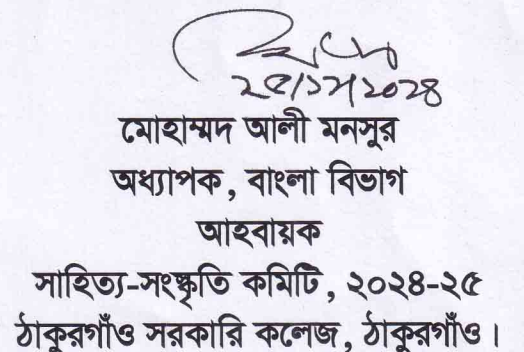 ২৫/১১/২০২৪
মোহাম্মদ আলী মনসুর
অধ্যাপক, বাংলা বিভাগ
আহবায়ক
সাহিত্য-সংস্কৃতি কমিটি, ২০২৪-২৫
ঠাকুরগাঁও সরকারি কলেজ, ঠাকুরগাঁও।